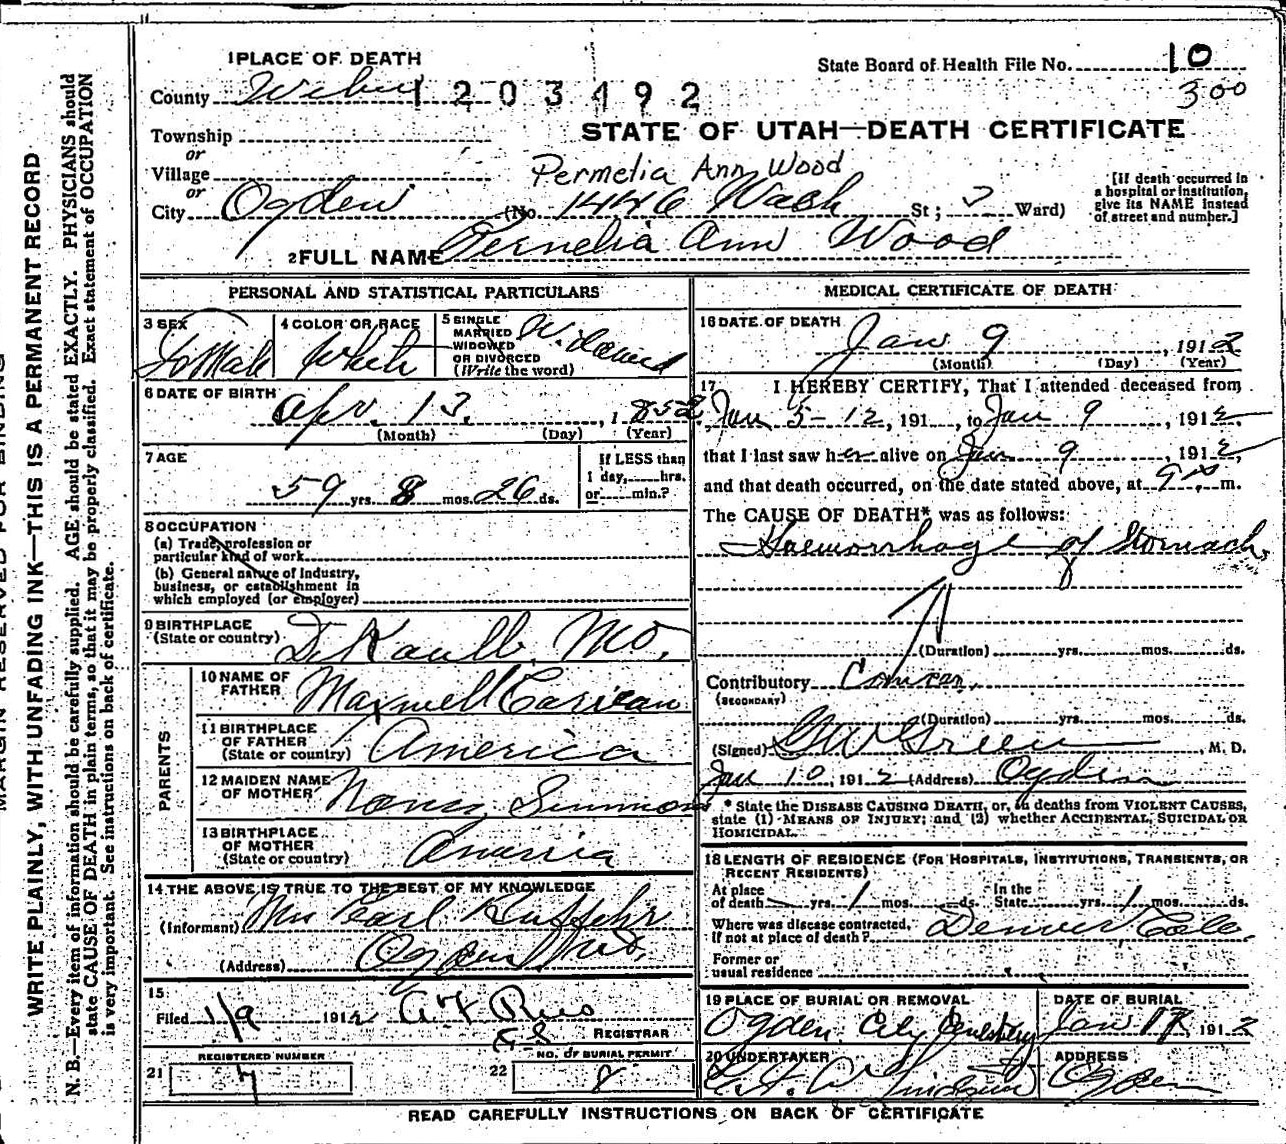 1 PLACE OF DEATH
State Board of Health File No. 10
County Weber 1203492
300
STATE OF UTAH—DEATH CERTIFICATE
Township
or
Village
or
Permelia Ann Wood
City Ogden (No. 1446 Wash St; 2 Ward)
[If death occurred in
a hospital or institution,
give its NAME instead
of street and number.]
2 FULL NAME Permelia Ann Wood
PERSONAL AND STATISTICAL PARTICULARS
3 SEX
FeMale
4 COLOR OR RACE
White
5 SINGLE
MARRIED
WIDOWED
OR DIVORCED
(Write the word)
Widowed
6 DATE OF BIRTH
Apr. 13, 1852
(Month) (Day) (Year)
7 AGE
59 yrs. 8 mos. 26 ds.
If LESS than
1 day, hrs.
or min.?
8 OCCUPATION
(a) Trade, profession or
particular kind of work
(b) General nature of Industry,
business, or establishment in
which employed (or employer)
9 BIRTHPLACE
(State or country) DeKaulb, Mo,
PARENTS
10 NAME OF
FATHER Maxwell
11 BIRTHPLACE
OF FATHER
(State or country) America
12 MAIDEN NAME
OF MOTHER Nancy Simmons
13 BIRTHPLACE
OF MOTHER
(State or country) America
14 THE ABOVE IS TRUE TO THE BEST OF MY KNOWLEDGE
(Informant) Mrs Pearl
(Address) Ogden
15
Filed 1/9 1912
REGISTRAR
REGISTERED NUMBER
21 7
NO. OF BURIAL PERMIT
22 8
MEDICAL CERTIFICATE OF DEATH
16 DATE OF DEATH
Jan 9, 1912
(Month) (Day) (Year)
17 I HEREBY CERTIFY, That I attended deceased from
Jan 5-12, 191, to Jan 9 1912,
that I last saw her alive on Jan 9, 1912,
and that death occurred, on the date stated above, at 9 m.
The CAUSE OF DEATH* was as follows:
Haemorrhage of Stomach,
(Duration) yrs. mos. ds.
Contributory
(SECONDARY)
(Duration) yrs. mos. ds.
(Signed) Green, M. D.
Jan 10, 1912 (Address) Ogden
* State the DISEASE CAUSING DEATH, or, in deaths from VIOLENT CAUSES,
state (1) MEANS OF INJURY; and (2) whether ACCIDENTAL, SUICIDAL OR
HOMICIDAL.
18 LENGTH OF RESIDENCE (FOR HOSPITALS, INSTITUTIONS, TRANSIENTS, OR
RECENT RESIDENTS)
At place
of death yrs. 1 mos. ds.
In the
State yrs. 1 mos. ds.
Where was disease contracted,
if not at place of death? Denver Colo.
Former or
usual residence
19 PLACE OF BURIAL OR REMOVAL
Ogden City Cemetery
DATE OF BURIAL
Jan 1912
20 UNDERTAKER
ADDRESS
Ogden
READ CAREFULLY INSTRUCTIONS ON BACK OF CERTIFICATE
MARGIN RESERVED FOR BINDING
WRITE PLAINLY, WITH UNFADING INK—THIS IS A PERMANENT RECORD
N. B.—Every item of information should be carefully supplied. AGE should be stated EXACTLY. PHYSICIANS should
state CAUSE OF DEATH in plain terms, so that it may be properly classified. Exact statement of OCCUPATION
is very important. See instructions on back of certificate.